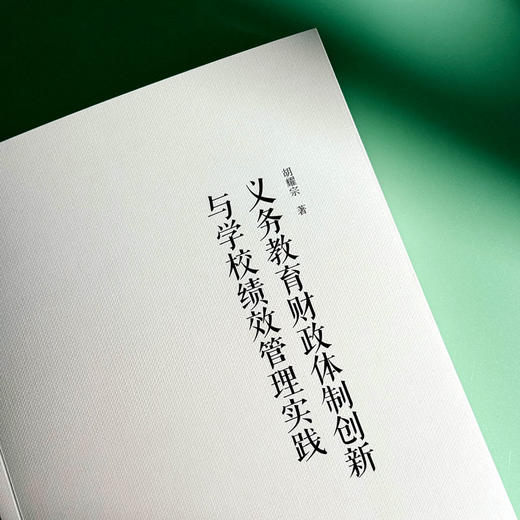 胡耀宗 著
义务教育财政体制创新
与学校绩效管理实践